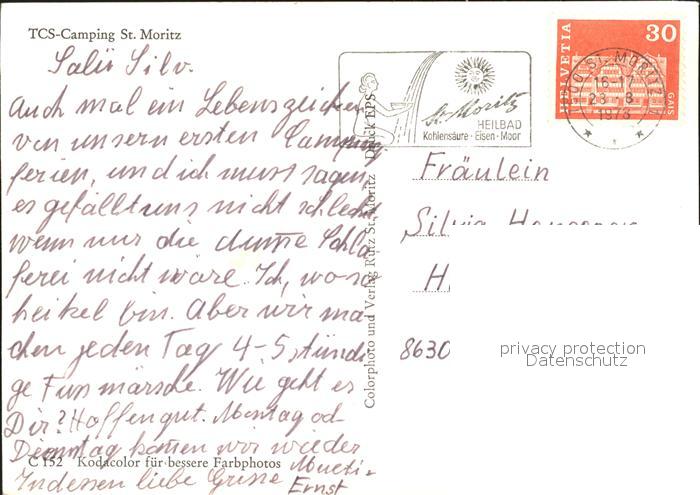 TCS-Camping St. Moritz
Salü Silv.
Auch mal ein Lebenszeichen
von unsern ersten Camping
ferien, und ich muss sagen,
es gefällt uns nicht schlecht
wenn nur die dumme Schla
ferei nicht wäre. Ich, wo so
heikel bin. Aber wir ma-
chen jeden Tag 4-5 stündi
ge Fussmärsche. Wie geht es
Dir? Hoffen gut. Montag od.
Dienstag kommen wir wieder
C 152 Kodacolor für bessere Farbphotos
Indessen liebe Grüsse
Ernst
Colorphoto und Verlag Rutz St. Moritz Druck EPS
St. Moritz
HEILBAD
Kohlensäure · Eisen · Moor
HELVETIA
30
GAIS
7500 ST. MORITZ
Fräulein
Silvia
H.
8630
privacy protection
Datenschutz